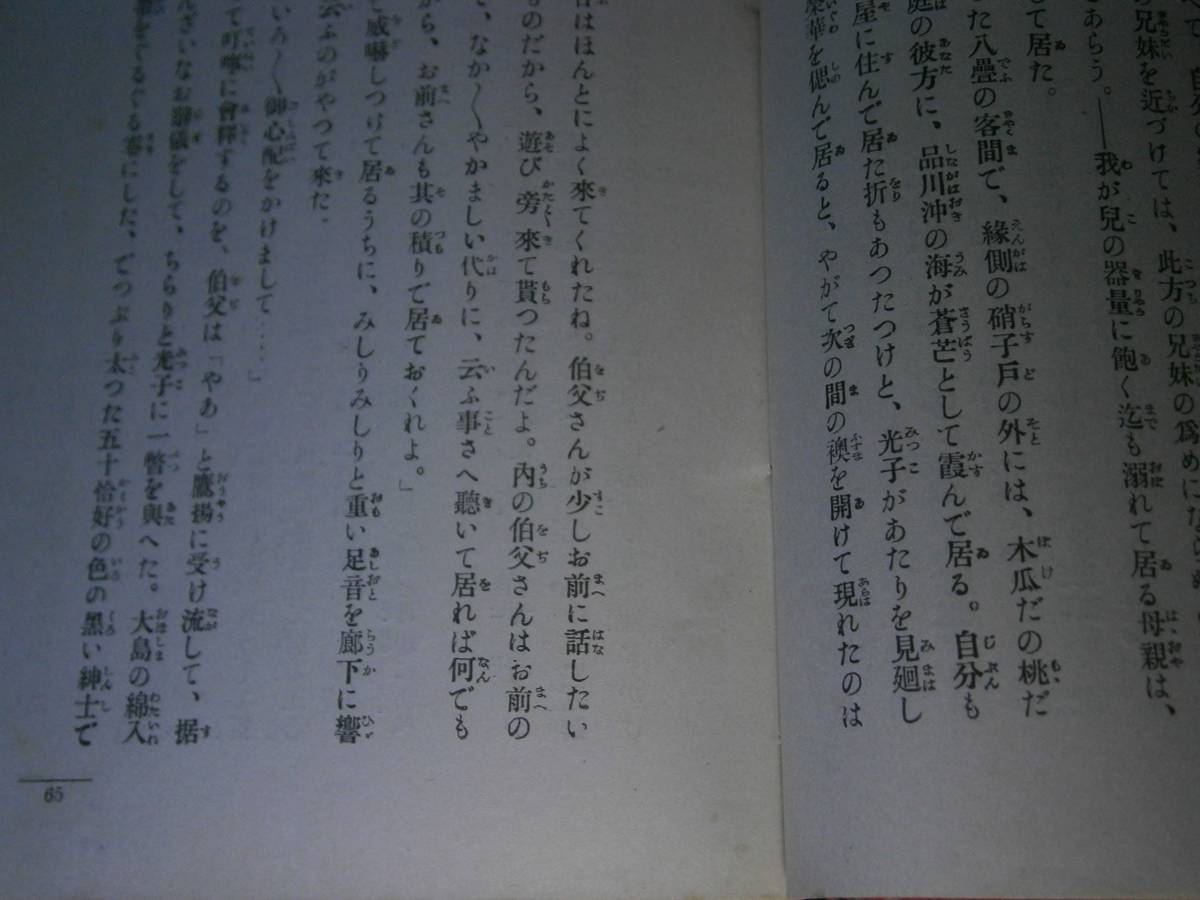 兄妹を近づけては、此方の兄妹の爲めに
あらう。――我が兒の器量に飽く迄も溺れて居る母親は、
して居た。
た八疊の客間で、緣側の硝子戸の外には、木瓜だの桃だ
庭の彼方に、品川沖の海が蒼芒として霞んで居る。自分も
屋に住んで居た折もあつたつけと、光子があたりを見廻し
榮華を偲んで居ると、やがて次の間の襖を開けて現れたのは
はほんとによく來てくれたね。伯父さんが少しお前に話したい
ものだから、遊び旁來て貰つたんだよ。內の伯父さんはお前の
、なか〱やかましい代りに、云ふ事さへ聽いて居れば何でも
から、お前さんも其の積りで居ておくれよ。」
と威嚇しつけて居るうちに、みしりみしりと重い足音を廊下に響
云ふのがやつて來た。
いろ〱御心配をかけまして‥‥」
て叮嚀に會釋するのを、伯父は「やあ」と鷹揚に受け流して、据
ざいなお辭儀をして、ちらりと光子に一瞥を與へた。大島の綿入
をぐるぐる卷にした、でつぷり太つた五十恰好の色の黑い紳士で
65